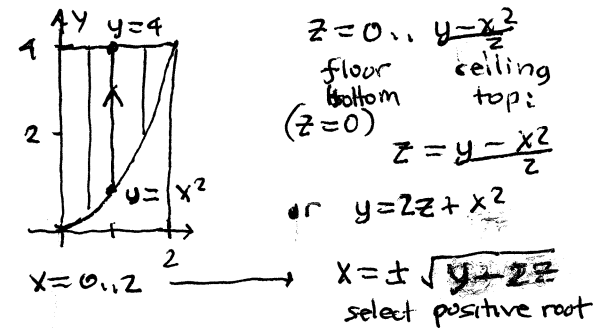 y
y=4
4
2
y = x²
2
x=0..2
z=0.. (y-x²)/2
floor ceiling
bottom top:
(z=0)
z = (y-x²)/2
or y=2z+x²
x=±√(y-2z)
select positive root